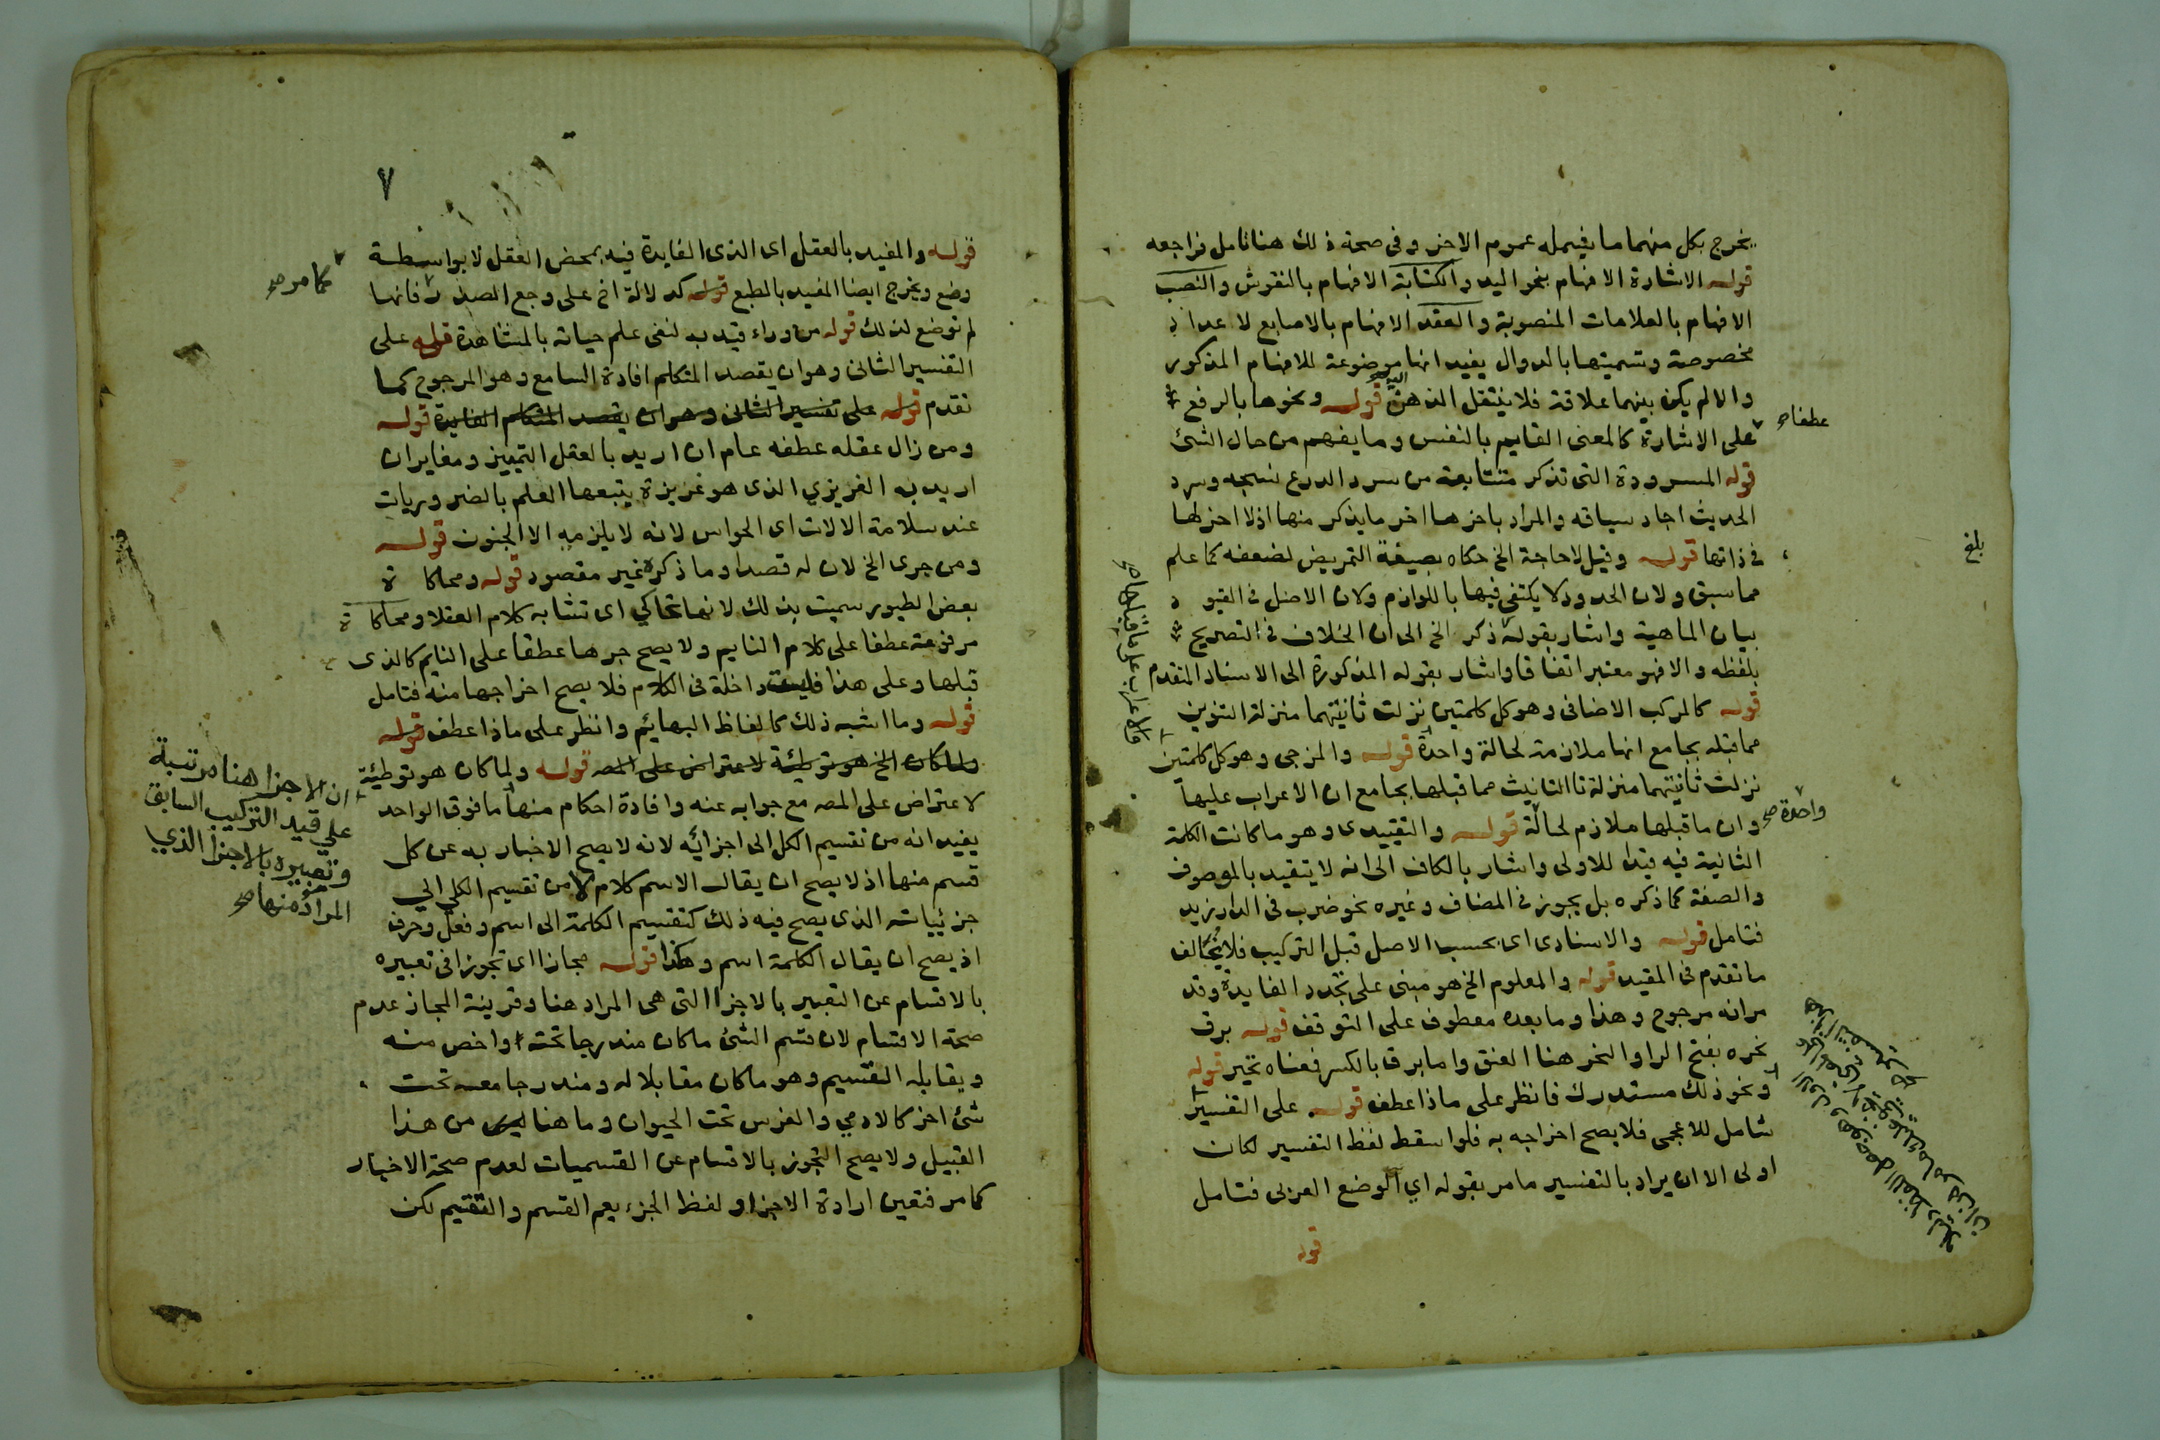 يخرج بكل منهما ما يفيمله عموم الاخر وفى صحة ذلك هنا تامل فراجعه
قوله الاشارة الافهام بنحو اليد والكتابة الافهام بالنقوش والنصب
الافهام بالعلامات المنصوبة والعقد الافهام بالاصابع لاعداد
مخصوصة وتسميتها بالدوال يفيد انها موضوعة للافهام المذكور
والالم يكن بينهما علاقة فلا ينتقل الذهن قوله ونحوها بالرفع
عطفا صح
على الاشارة كالمعنى القايم بالنفس وما يفهم من حال الشئ
قوله المسرودة التى تذكر متتابعة من سرد الدرع نسجه وسرد
الحديث اجاد سياقه والمراد باخرها اخر ما يذكر منها اذ لا اخر لها
فى ذاتها قوله وقيل لا حاجة الخ حكاه بصيغة التمريض لضعفه كما علم
بلغ
مما سبق ولان الحدود لا يكتفى فيها باللوازم ولان الاصل فى القيود
بيان الماهية واشار بقوله ذكر الخ الى ان الخلاف فى التصريح
بلفظه والا فهو معتبر اتفاقا واشار بقوله المذكورة الى الاسناد المتقدم
قوله كالمركب الاضافى وهو كل كلمتين نزلت ثانيتهما منزلة التنوين
مما قبله بجامع انها ملازمة لحالة واحدة قوله والمزجى وهو كل كلمتين
نزلت ثانيتهما منزلة تا التانيث مما قبلها بجامع ان الاعراب عليها
وان ما قبلها ملازم لحالة قوله والتقييدى وهو ما كانت الكلمة
واحدة صح
الثانية فيه قيدا للاولى واشار بالكاف الى انه لا يتقيد بالموصوف
والصفة كما ذكره بل يجوز فى المضاف وغيره نحو ضرب فى الدار زيد
فتامل قوله والاسنادى اى بحسب الاصل قبل التركيب فلا يخالف
ما تقدم فى المقيد قوله والمعلوم الخ هو مبنى على تجدد الفايدة وقد
مر انه مرجوح وهذا وما بعده معطوف على التوقف قوله برق
نحره بفتح الرا والنحر هنا العنق واما برق بالكسر فمعناه تحير قوله
ونحو ذلك مستدرك فانظر على ماذا عطف قوله على التفسير
شامل للاعجمى فلا يصح اخراجه به فلو اسقط لفظ التفسير لكان
اولى الا ان يراد بالتفسير ما مر بقوله اي الوضع العربى فتامل
قوله
٧
قوله والمفيد بالعقل اى الذى الفايدة فيه بمحض العقل لا بواسطة
وضع ويخرج ايضا المفيد بالطبع قوله كدلالة اخ على وجع الصدر فانها
كما مر صح
لم توضع لذلك قوله من وراء قيد به لنفى علم حياته بالمشاهدة قوله على
التفسير الثانى وهو ان يقصد المتكلم افادة السامع وهو المرجوح كما
تقدم قوله على تفسير الثانى وهو ان يقصد المتكلم الفايدة قوله
ومن زال عقله عطفه عام ان اريد بالعقل التمييز ومغاير ان
اريد به الغريزي الذى هو غريزة يتبعها العلم بالضروريات
عند سلامة الالات اى الحواس لانه لا يلزمه الا الجنون قوله
ومن جرى الخ لان له قصدا وما ذكره غير مقصود قوله ومحاكاة
بعض الطيور سميت بذلك لانها تحاكي اى تشابه كلام العقلا ومحاكاة
مرفوعة عطفا على كلام النايم ولا يصح جرها عطفا على النايم كالذى
قبلها وعلى هذا فليست داخلة فى الكلام فلا يصح اخراجها منه فتامل
قوله وما اشبه ذلك كالفاظ البهائم وانظر على ماذا عطف قوله
ولما كان الخ هو توطئة لاعتراض على المصه قوله ولما كان هو توطئية
لاعتراض على المصه مع جوابه عنه وافادة احكام منها ما فوق الواحد
ان الاجزا هنا مرتبة
علي قيد التركيب السابق
وتعبيره بالاجزا الذي
المراد منها صح
يفيد انه من تقسيم الكل الى اجزائه لانه لا يصح الاخبار به عن كل
قسم منها اذ لا يصح ان يقال الاسم كلام لا من تقسيم الكلي الي
جزئياته الذى يصح فيه ذلك كتقسيم الكلمة الى اسم وفعل وحرف
اذ يصح ان يقال الكلمة اسم وهكذا قوله مجازا اى تجوزا فى تعبيره
بالاقسام عن التعبير بالاجزا التى هى المراد هنا وقرينة المجاز عدم
صحة الاقسام لان قسم الشئ ما كان مندرجا تحته واخص منه
ويقابله التقسيم وهو ما كان مقابلا له ومندرجا معه تحت
شئ اخر كالادمي والفرس تحت الحيوان وما هنا ليس من هذا
القبيل ولا يصح التجوز بالاقسام عن القسميات لعدم صحة الاخبار
كما مر فتعين ارادة الاجزا ولفظ الجزء يعم القسم والتقيم لكن